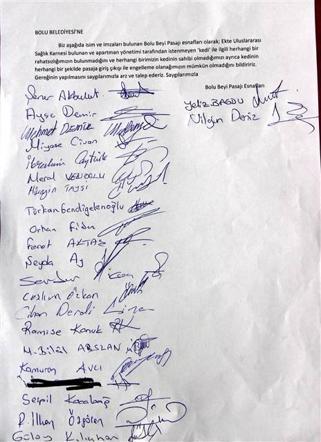 BOLU BELEDİYESİ'NE
Biz aşağıda isim ve imzaları bulunan Bolu Beyi Pasajı esnafları olarak; Ekte Uluslararası
Sağlık Karnesi bulunan ve apartman yönetimi tarafından istenmeyen 'kedi' ile ilgili herhangi bir
rahatsızlığımızın bulunmadığını ve herhangi birimizin kedinin sahibi olmadığımızı ayrıca kedinin
herhangi bir şekilde pasaja giriş çıkışı ile engelleme olanağımızın mümkün olmadığını bildiririz.
Gereğinin yapılmasını saygılarımızla arz ve talep ederiz. Saygılarımızla
Bolu Beyi Pasajı Esnafları
Şener Akbulut
Ayşe Demir
Mehmet DEMİR
Miyase Civan
İbrahim
Meral
Türkan Gendigelenoğlu
Orhan
Ferat AKTAŞ
Şeyda Ay
Serdar
Coşkun Özkan
Cihan
Ramise Konuk
M. Bilal ARSLAN
Kamuran AVCI
Serpil
R. İlhan Özgören
Gülay
Yeliz
Nilgün Deniz